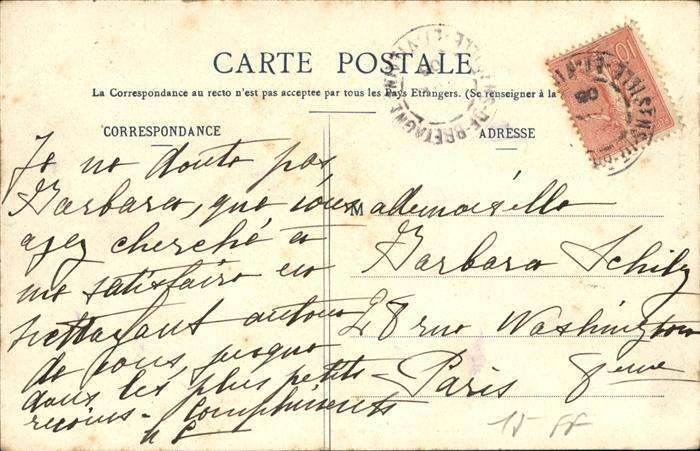 CARTE POSTALE
La Correspondance au recto n'est pas acceptée par tous les Pays Etrangers. (Se renseigner à la
CORRESPONDANCE
ADRESSE
Je ne doute pas
Barbara, que vous
ayez cherché à
me satisfaire en
nettoyant autour
de vous jusque
dans les plus petits
recoins - Compliments
Mademoiselle
Barbara Schily
28 rue Washington
Paris 8eme
10
15 FF